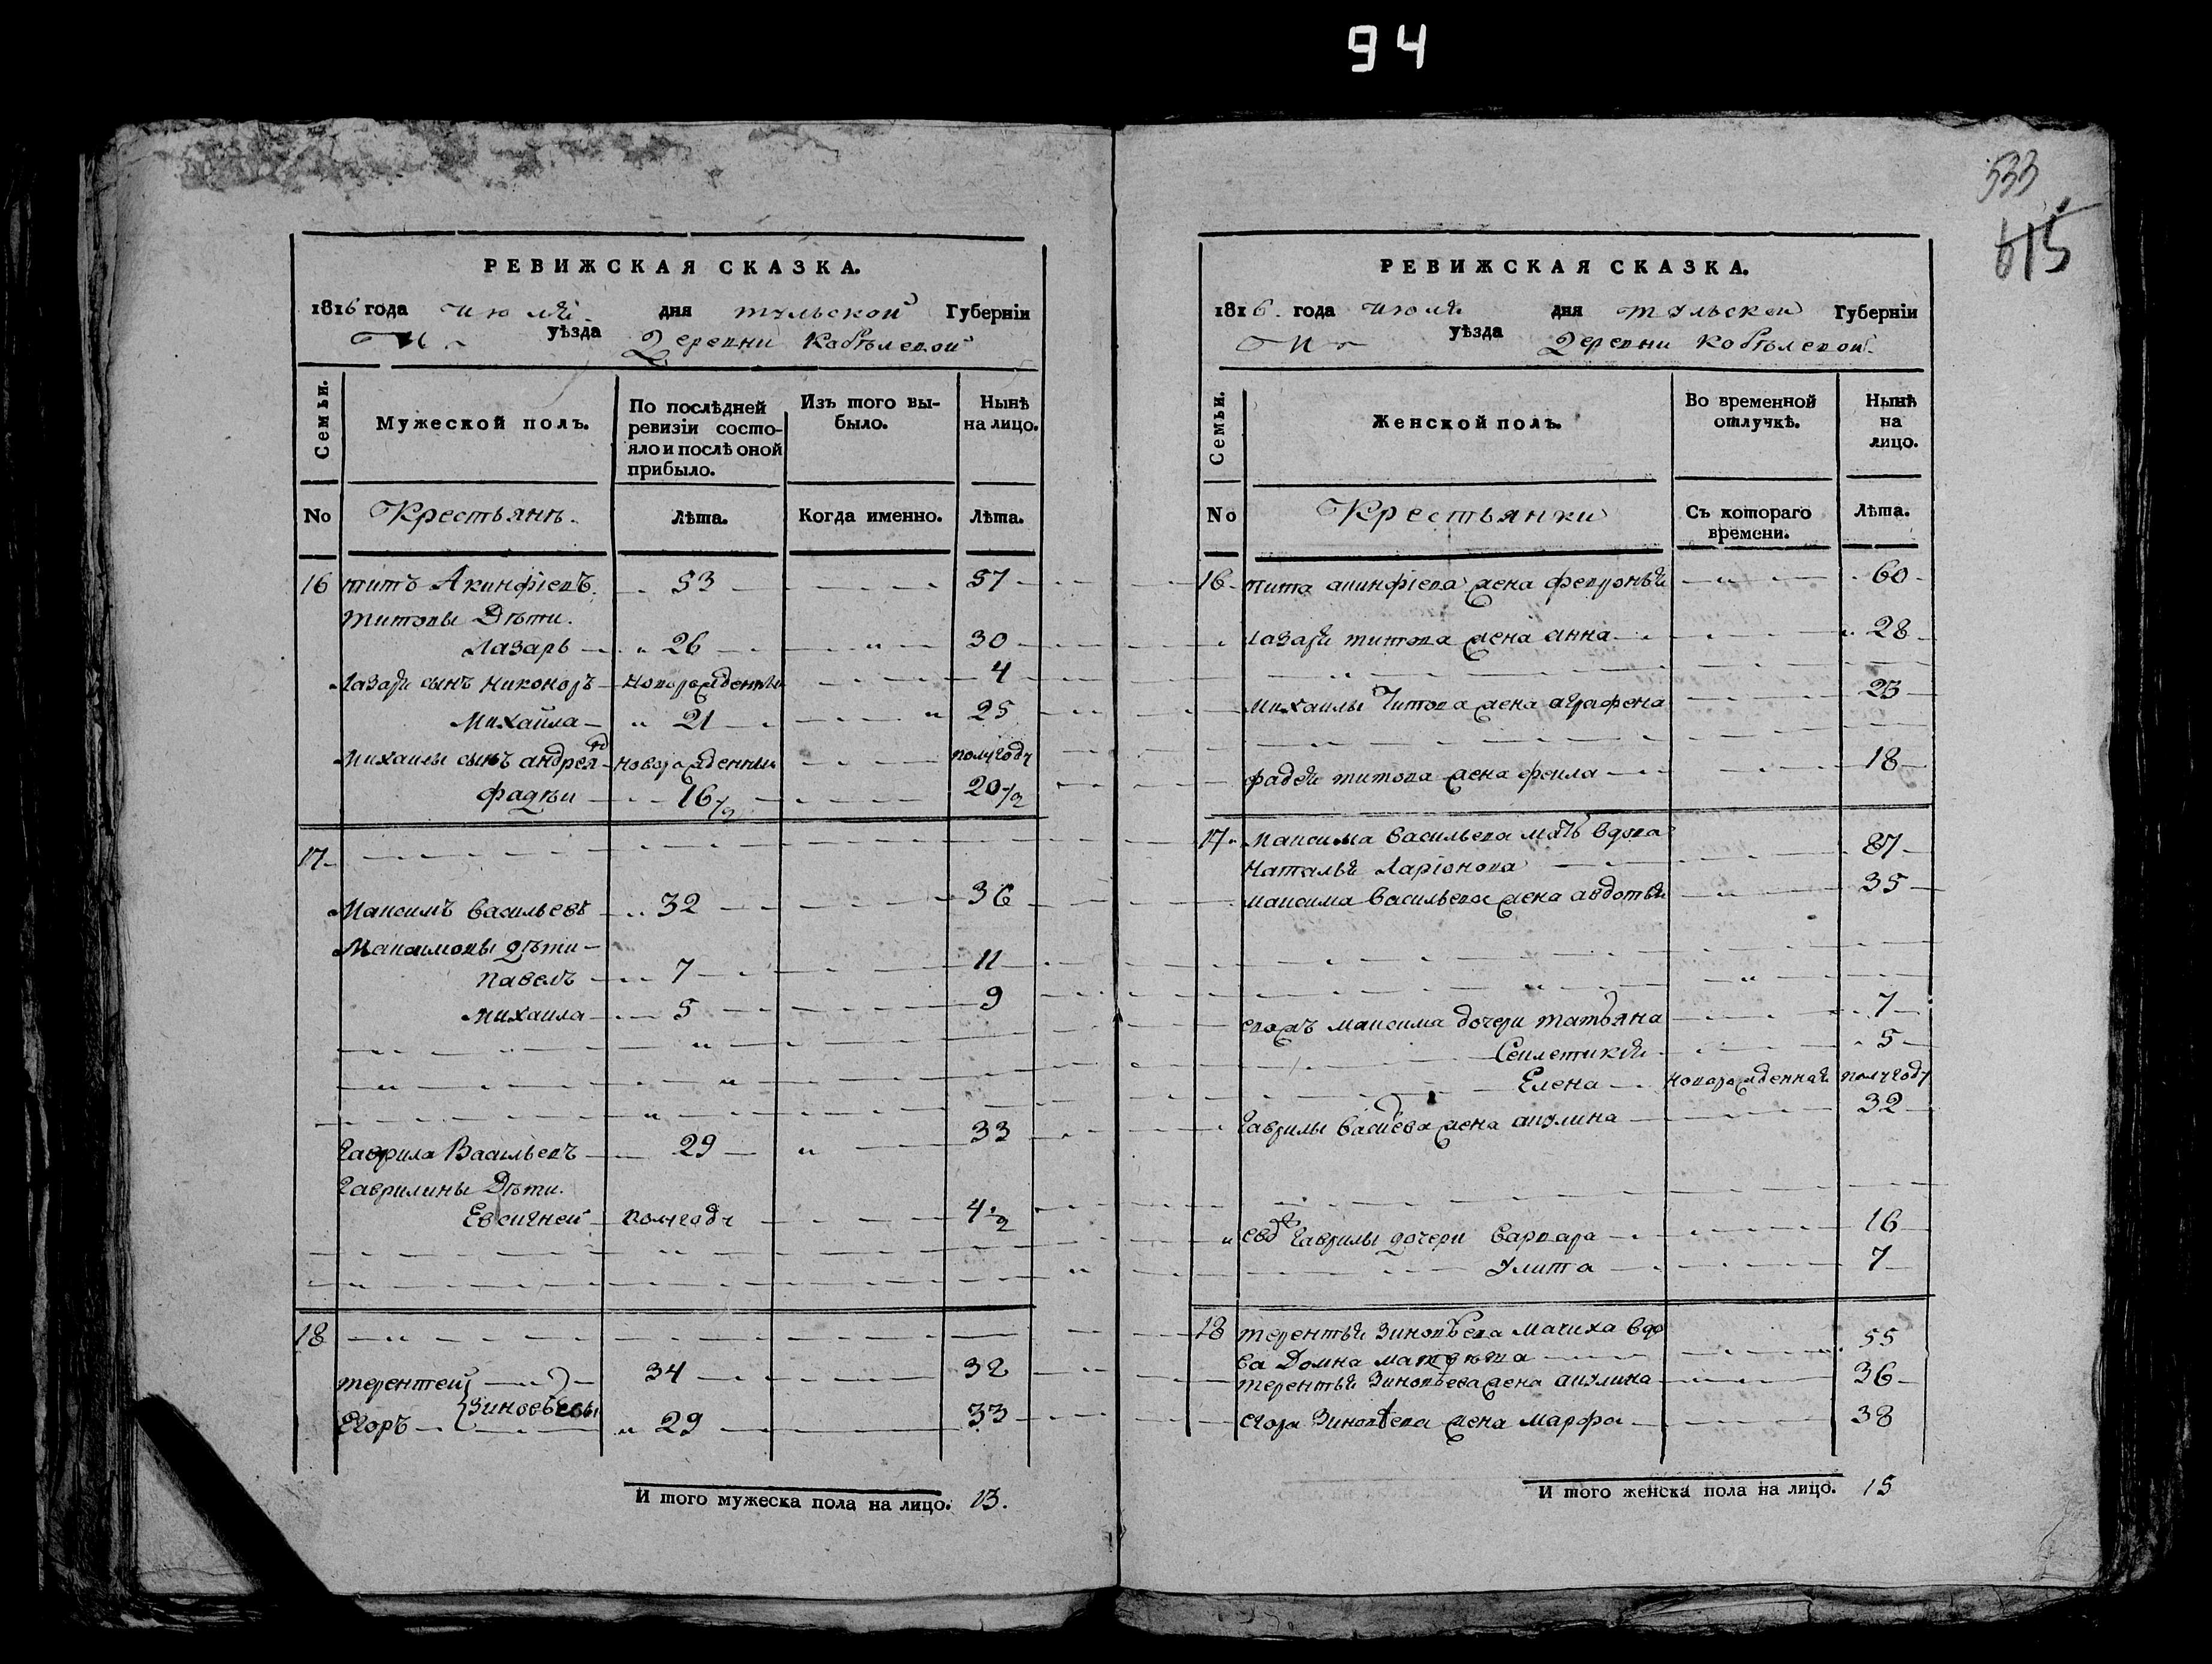 94
533
615
РЕВИЖСКАЯ СКАЗКА.
1816 года июля дня тульской Губерніи
уѣзда Деревни Кобѣлевой
Семьи.
Мужеской полъ.
По послѣдней ревизіи состояло и послѣ оной прибыло.
Изъ того выбыло.
Нынѣ на лицо.
No Крестьянъ. Лѣта. Когда именно. Лѣта.
16 титъ Акинфіевъ 53 57
титовы Дѣти.
Лазарь 26 30
Лазаря сынъ Никоноръ новорожденный 4
Михайла 21 25
Михайлы сынъ андрей новорожденный полугоду
фадѣи 16 1/2 20 1/2
17
Максимъ васильевъ 32 36
Максимовы дѣти
павелъ 7 11
михаила 5 9
гаврила Васильевъ 29 33
гаврилины Дѣти.
Евсигней полугоду 4 1/2
18
терентей 34 32
Зиновьевы
Егоръ 29 33
И того мужеска пола на лицо. 13.
РЕВИЖСКАЯ СКАЗКА.
1816 года июля дня тульской Губерніи
уѣзда Деревни Кобѣлевой
Семьи.
Женской полъ.
Во временной отлучкѣ.
Нынѣ на лицо.
No Крестьянки Съ котораго времени. Лѣта.
16 тита акинфіева жена февронья 60
лазаря титова жена анна 28
михаилы титова жена аграфена 23
фадея титова жена фекла 18
17 максима васильева мать вдова
Наталья Ларіонова 87
максима васильева жена авдотья 35
максима дочери татьяна 7
5
Елена новорожденная полугоду
гаврилы жена акулина 32
гаврилы дочери варвара 16
улита 7
18 терентья зиновьева мачиха вдо
ва Домна 55
терентья зиновьева жена акулина 36
егора зиновьева жена марфа 38
И того женска пола на лицо. 15